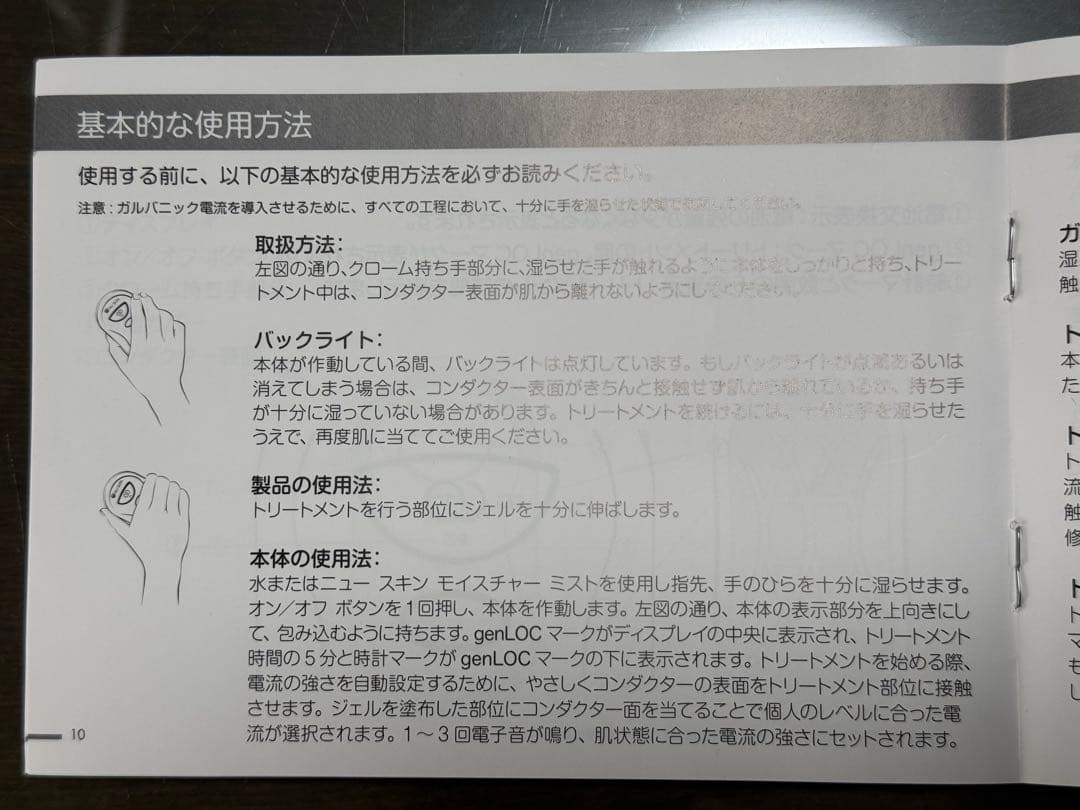 基本的な使用方法
使用する前に、以下の基本的な使用方法を必ずお読みください。
注意：ガルバニック電流を導入させるために、すべての工程において、十分に手を湿らせた状態で使用してください。
取扱方法：
左図の通り、クローム持ち手部分に、湿らせた手が触れるように本体をしっかりと持ち、トリー
トメント中は、コンダクター表面が肌から離れないようにしてください。
バックライト：
本体が作動している間、バックライトは点灯しています。もしバックライトが点滅あるいは
消えてしまう場合は、コンダクター表面がきちんと接触せず肌から離れているか、持ち手
が十分に湿っていない場合があります。トリートメントを続けるには、十分に手を湿らせた
うえで、再度肌に当ててご使用ください。
製品の使用法：
トリートメントを行う部位にジェルを十分に伸ばします。
本体の使用法：
水またはニュー スキン モイスチャー ミストを使用し指先、手のひらを十分に湿らせます。
オン／オフ ボタンを1回押し、本体を作動します。左図の通り、本体の表示部分を上向きにし
て、包み込むように持ちます。genLOC マークがディスプレイの中央に表示され、トリートメント
時間の5分と時計マークが genLOC マークの下に表示されます。トリートメントを始める際、
電流の強さを自動設定するために、やさしくコンダクターの表面をトリートメント部位に接触
させます。ジェルを塗布した部位にコンダクター面を当てることで個人のレベルに合った電
流が選択されます。1～3回電子音が鳴り、肌状態に合った電流の強さにセットされます。
10
ガ
湿
触
ト
本
た
ト
ト
流
触
修
ト
ト
マ
も
し